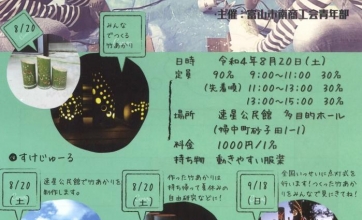 主催:富山市南商工会青年部
8/20
みんな
でつくる
竹あかり
日時 令和4年8月20日(土)
定員 90名 9:00~11:00 30名
(先着順) 11:00~13:00 30名
13:00~15:00 30名
場所 速星公民館 多目的ホール
(婦中町砂子田1-1)
料金 1000円/1名
持ち物 動きやすい服装
すけじゅーる
8/20
(土)
速星公民館で竹あかりを
制作します。
8/20
(土)
作った竹あかりは
持ち帰って夏休みの
自由研究などに!
9/18
(日)
全国いっせいに点灯式を
行います!つくった竹あかり
をみんなで見にきてね!